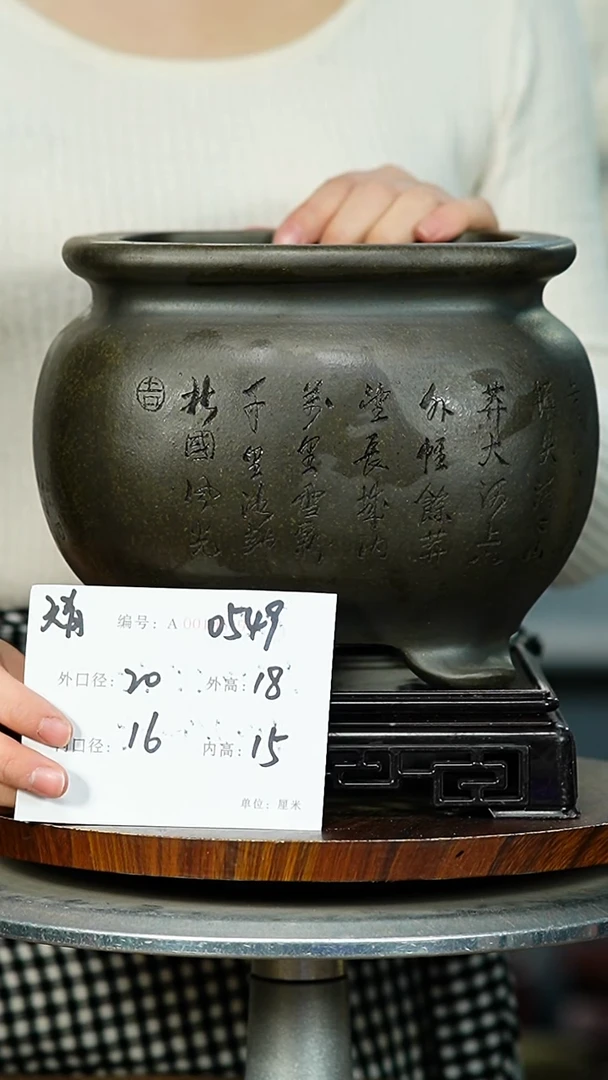 吉
北國風光
千里冰封
萬里雪飄
望長城内
外惟餘莽
莽大河上
頓失滔
编号: A 00 0549
外口径: 20 外高: 18
内口径: 16 内高: 15
单位: 厘米